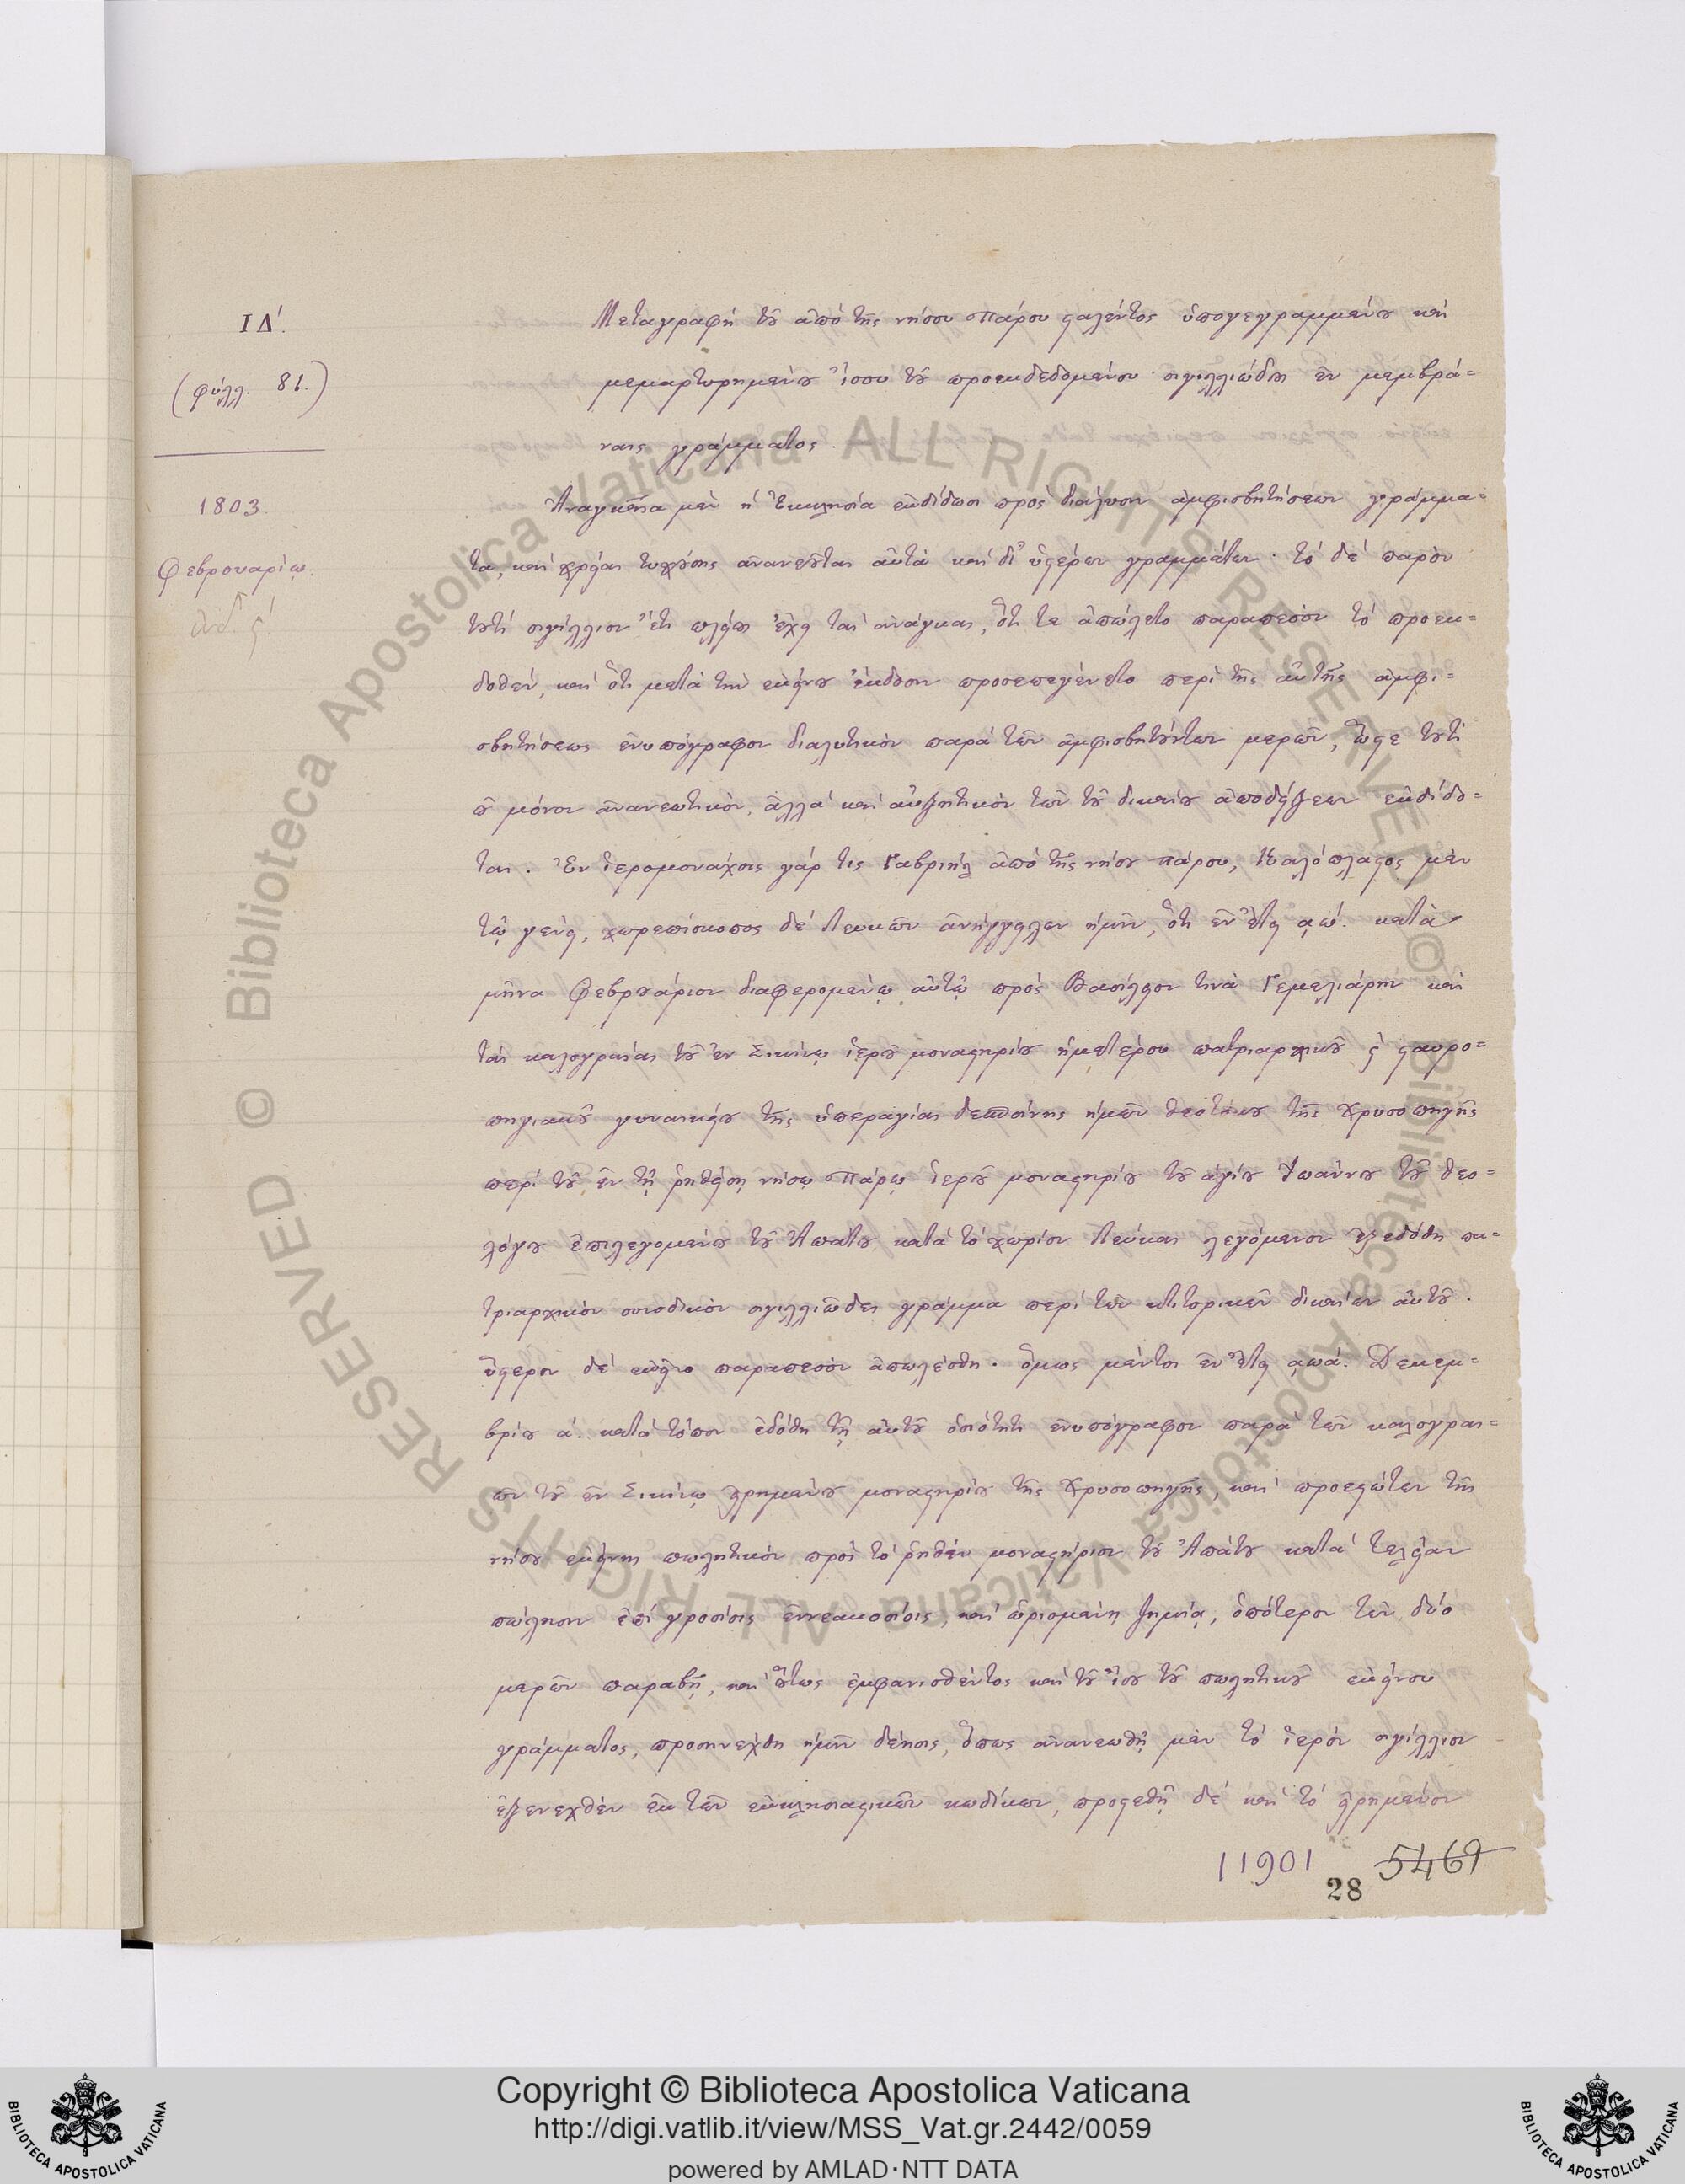 ΙΔ΄.
(φύλλ. 81.)
1803.
Φεβρουαρίῳ.
ἰνδ. ς΄
Μεταγραφὴ τοῦ ἀπὸ τῆς νήσου Πάρου σταλέντος ὑπογεγραμμένου καὶ
μεμαρτυρημένου ἴσου τοῦ προεκδεδομένου σιγιλλιώδους ἐν μεμβρά=
ναις γράμματος.
Ἀναγκαῖα μὲν ἡ Ἐκκλησία ἐκδίδωσι πρὸς διάλυσιν ἀμφισβητήσεων γράμμα=
τα, καὶ χρείας τυχούσης ἀνανεοῦται αὐτὰ καὶ δι' ὑστέρων γραμμάτων· τὸ δὲ παρὸν
τουτὶ σιγίλλιον ἔτι πλείους ἔχει τὰς ἀνάγκας, ὅτι τε ἀπώλετο παραπεσὸν τὸ προεκ=
δοθέν, καὶ ὅτι μετὰ τὴν ἐκείνου ἔκδοσιν προσεπεγένετο περὶ τῆς αὐτῆς ἀμφι=
σβητήσεως ἐνυπόγραφον διαλυτικὸν παρὰ τῶν ἀμφισβητούντων μερῶν, ὥστε τουτὶ
οὐ μόνον ἀνανεωτικὸν, ἀλλὰ καὶ αὐξητικὸν τῶν τοῦ δικαίου ἀποδείξεων ἐκδίδο=
ται. Ἐν ἱερομονάχοις γάρ τις Γαβριὴλ ἀπὸ τῆς νήσου Πάρου, Καλόπλαστος μὲν
τῷ γένει, χωρεπίσκοπος δὲ Λευκῶν ἀνήγγειλεν ἡμῖν, ὅτι ἐν ἔτει αω΄. κατὰ
μῆνα Φεβρουάριον διαφερομένῳ αὐτῷ πρὸς Βασίλειον τινὰ Γεμελιάρην καὶ
τὰς καλογραίας τοῦ ἐν Σικίνῳ ἱεροῦ μοναστηρίου ἡμετέρου πατριαρχικοῦ ϛ̀ σταυρο=
πηγιακοῦ γυναικείου τῆς ὑπεραγίας δεσποίνης ἡμῶν θεοτόκου τῆς Χρυσοπηγῆς
περὶ τοῦ ἐν τῇ ῥηθείσῃ νήσῳ Πάρῳ ἱεροῦ μοναστηρίου τοῦ ἁγίου Ἰωάννου τοῦ θεο=
λόγου ἐπιλεγομένου τοῦ Ἀπάτου κατὰ τὸ χωρίον Λεύκας λεγόμενον ἐξεδόθη πα=
τριαρχικὸν συνοδικὸν σιγιλλιῶδες γράμμα περὶ τῶν κτιτορικῶν δικαίων αὐτοῦ.
ὕστερον δὲ ἐκεῖνο παραπεσὸν ἀπωλέσθη. ὅμως μέντοι ἐν ἔτει αωα΄. Δεκεμ=
βρίου α΄. κατὰ τόπον ἐδόθη τῇ αὐτοῦ ὁσιότητι ἐνυπόγραφον παρὰ τῶν καλογραι=
ῶν τοῦ ἐν Σικίνῳ εἰρημένου μοναστηρίου τῆς Χρυσοπηγῆς, καὶ προεστώτων τῆς
νήσου ἐκείνης πωλητικὸν πρὸς τὸ ῥηθὲν μοναστήριον τοῦ Ἀπάτου κατὰ τελείαν
πώλησιν ἐπὶ γροσίοις ἐννεακοσίοις, καὶ ὡρισμένῃ ζημίᾳ, ὁπότερον τῶν δύο
μερῶν παραβῇ, καὶ οὕτως ἐμφανισθέντος καὶ τοῦ ἴσου τοῦ πωλητικοῦ ἐκείνου
γράμματος, προσηνέχθη ἡμῖν δέησις, ὅπως ἀνανεωθῇ μὲν τὸ ἱερὸν σιγίλλιον
ἐξενεχθὲν ἐκ τῶν ἐκκλησιαστικῶν κωδίκων, προστεθῇ δὲ καὶ τὸ εἰρημένον
11901
28
5469
© Biblioteca Apostolica Vaticana ALL RIGHTS RESERVED
© Biblioteca Apostolica Vaticana ALL RIGHTS RESERVED
Copyright © Biblioteca Apostolica Vaticana
http://digi.vatlib.it/view/MSS_Vat.gr.2442/0059
powered by AMLAD·NTT DATA
BIBLIOTECA APOSTOLICA VATICANA
BIBLIOTECA APOSTOLICA VATICANA